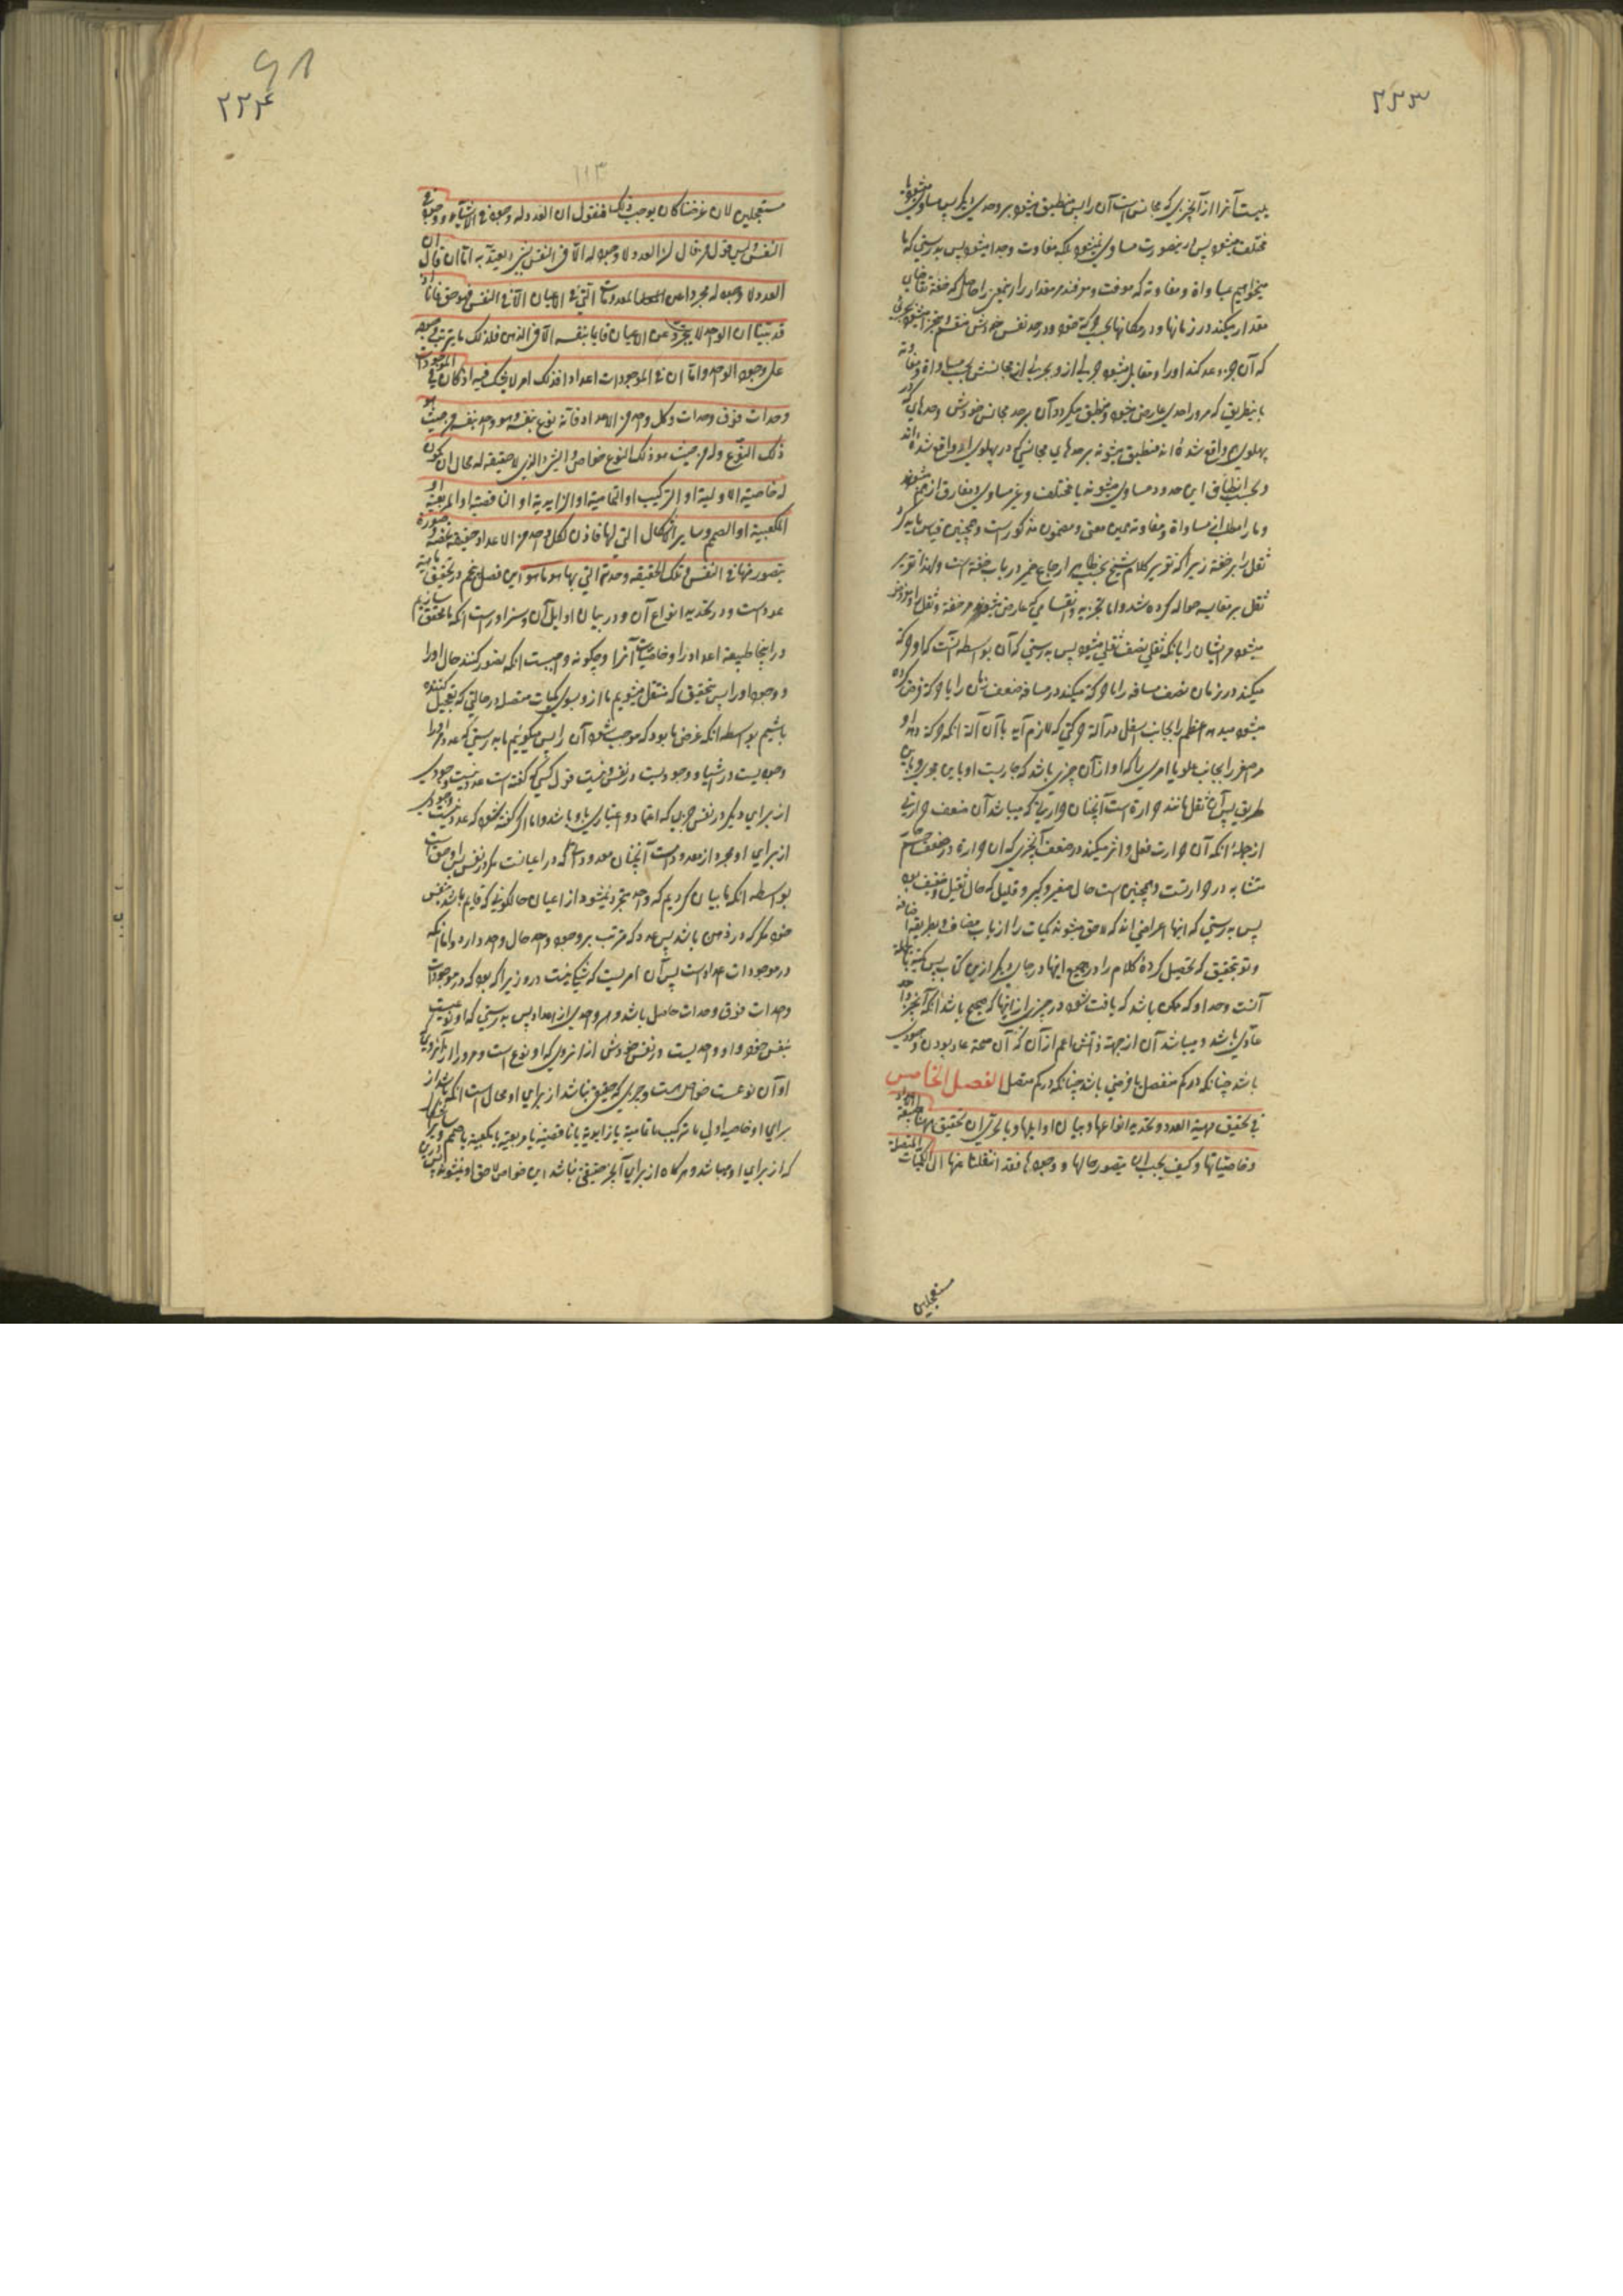 ۲۲۳
مختلف میشود پس درینصورت مساوی نمیشود بلکه مفاوت وجدا میشود پس بدرستی که ما
میخواهیم مساواة و مفاوته که
مقدار میکند در زمانها و در مکانها بحسب حرکة خود و در حد نفس خودش منقسم و متجزا میشود بجزئی
که آن جزء عد کند او را و مقابل میشود جزیی از و بجزیی از مجانسش بحسب مساواة و مفاوته
باینطریق که مر او را حدی عارض میشود و منطبق میگردد آن بر حد مجانس خودش و حدهای که در
پهلوی او واقع شده اند منطبق میشوند بر حدهای مجانسی که در پهلوی او واقع شده اند
و بحسب انطباق این حدود مساوی میشوند یا مختلف و غیر مساوی و مفارق از هم میشوند
و ما را مطلب از مساواة و مفاوته همین معنی و مضمون مذکور است و همچنین قیاس باید کرد
ثقل را بر خفة زیرا که تقریر کلام شیخ بحسب ظاهر ارجاع ضمیر در باب خفة است ولهذا تقریر
ثقل بر مقایسه حواله کرده شد و اما تجزیه و انقسامی که عارض میشود مر خفة و ثقل را
میشود مر ایشان را بانکه ثقلی نصف ثقلی میشود پس بدرستی که آن بواسطه آنست که او حرکة
میکند در زمان نصف مسافه را یا حرکة میکند در مسافه ضعف زمان را یا حرکة فرض کرده
میشود مبدء اعظم را بجانب اسفل در آلة حرکتی که لازم آید با آن آلة انکه حرکة دهد او
مر اصغر را بجانب علو یا امری را که او از آن چیزی باشد که جاریست او باین مجری و باین
طریق پس آن ثقل مانند حرارة است آنچنان حرارتی که میباشد آن ضعف حرارتی
از جمله انکه آن حرارت فعل و اثر میکند در ضعف آنچیزی که ان حرارة در ضعف جسم
متشابه در حرارتست و همچنین است حال صغیر و کبیر و قلیل که حال ثقیل و خفیف بود
پس بدرستی که اینها اعراضی اند که لاحق میشوند کمیات را از باب مضاف و بطریقه اضافة
و تو بتحقیق که تحصیل کردهٔ کلام را در جمیع اینها در جای دیگر ازین کتاب پس کمیة بالجمله
آنست وحد او که ممکن باشد که یافت شود در چیزی از اینها که صحیح باشد انکه آنچیز واحد
عادی باشد و میباشد آن از جهة ذاتش اعم از آن که آن صحة عاد بودن وجودی
باشد چنانکه در کم منفصل یا فرضی باشد چنانکه در کم متصل الفصل الخامس
فی تحقیق مهیة العدد و تحدید انواعها و بیان اوایلها و بالحری ان تحقیق ههنا طبیعة الاعداد
و خاصیاتها و کیف یجب ان یتصور حالها و وجودها فقد انتقلنا منها الی الکمیات المتصلة
مستعجلین
۹۸
۲۲۴
۱۱۳
مستعجلین لان غرضنا کان یوجب ذلک فنقول ان العدد له وجود فی الاشیاء و وجود فی
النفس و لیس قول من قال ان العدد لا وجود له الا فی النفس بشی یعتد به اما ان قال ان
العدد لا وجود له مجردا عن المعدودات التی فی الاعیان الا فی النفس فهو حق فانا
قد بینا ان الواحد لا یتجرد عن الاعیان قایما بنفسه الا فی الذهن فکذلک ما یترتب وجوده
علی وجود الواحد و اما ان فی الموجودات اعدادا فذلک امر لا یشک فیه اذ کان فی الموجودات
وحدات فوق وحدات و کل واحد من الاعداد فانه نوع بنفسه و هو واحد بنفسه من حیث هو
ذلک النوع و له من حیث هو ذلک النوع خواص و الشی الذی لا حقیقه له محال ان یکون
له خاصیة الاولیة او الترکیب او التمامیة او الزایدیة او الناقصیة او المربعیة او
المکعبیة او الصمم و سایر الاشکال التی لها فاذن لکل واحد من الاعداد حقیقة تخصه و صورة
یتصور منها فی النفس و تلک الحقیقه وحدته التی بها هو ما هو این فصل پنجم در تحقیق ماهیة
عدد است و در تحدید انواع آن و در بیان اوایل آن و سزاورست انکه ما تحقیق سازیم
در اینجا طبیعة اعداد را و خاصیات آنرا و چگونه واجبست انکه تصور کنند حال او را
و وجود او را پس بتحقیق که منتقل میشویم ما از و بسوی کمیات متصله در حالتی که تعجیل کننده
باشیم بواسطه انکه غرض ما بود که موجب شود آن را پس میگوییم ما بدرستی که عدد مر او را
وجودیست در اشیاء و وجودیست در نفس و نیست قول کسی که گفته است عدد نیست وجودی
از برای دیگر در نفس چیزی که اعتماد و اعتباری باو باشد و اما اگر گفته شود که عدد نیست وجودی
از برای او مجرد از معدودات آنچنان معدوداتی که در اعیانست مگر در نفس پس او حق است
بواسطه انکه ما بیان کردیم که واحد متجرد نمیشود از اعیان حالکونی که قایم باشد بنفس
خود مگر که در ذهن باشد پس عدد که مترتب بر وجود واحد حال واحد دارد و اما انکه
در موجودات عدد است پس آن امریست که شکی نیست درو زیرا که بود که در موجودات
وحدات فوق وحدات حاصل باشد و هر واحدی از اعداد پس بدرستی که او نوعیست
بنفس خود و او واحدیست در نفس خودش از انروی که او نوع است و مر او را از آنروی
او آن نوعست خواص هست و چیزی که حقیقی نباشد از برای او محال است انکه باشد از
برای او خاصیه اولی یا ترکیب یا تمامیة یا زایدیة یا ناقصیة یا مربعیة یا مکعبیة یا صمم و دیگر شکلها
که از برای او میباشد و هر گاه از برای آنچیز حقیقی نباشد این خواص لاحق او نمیشوند پس